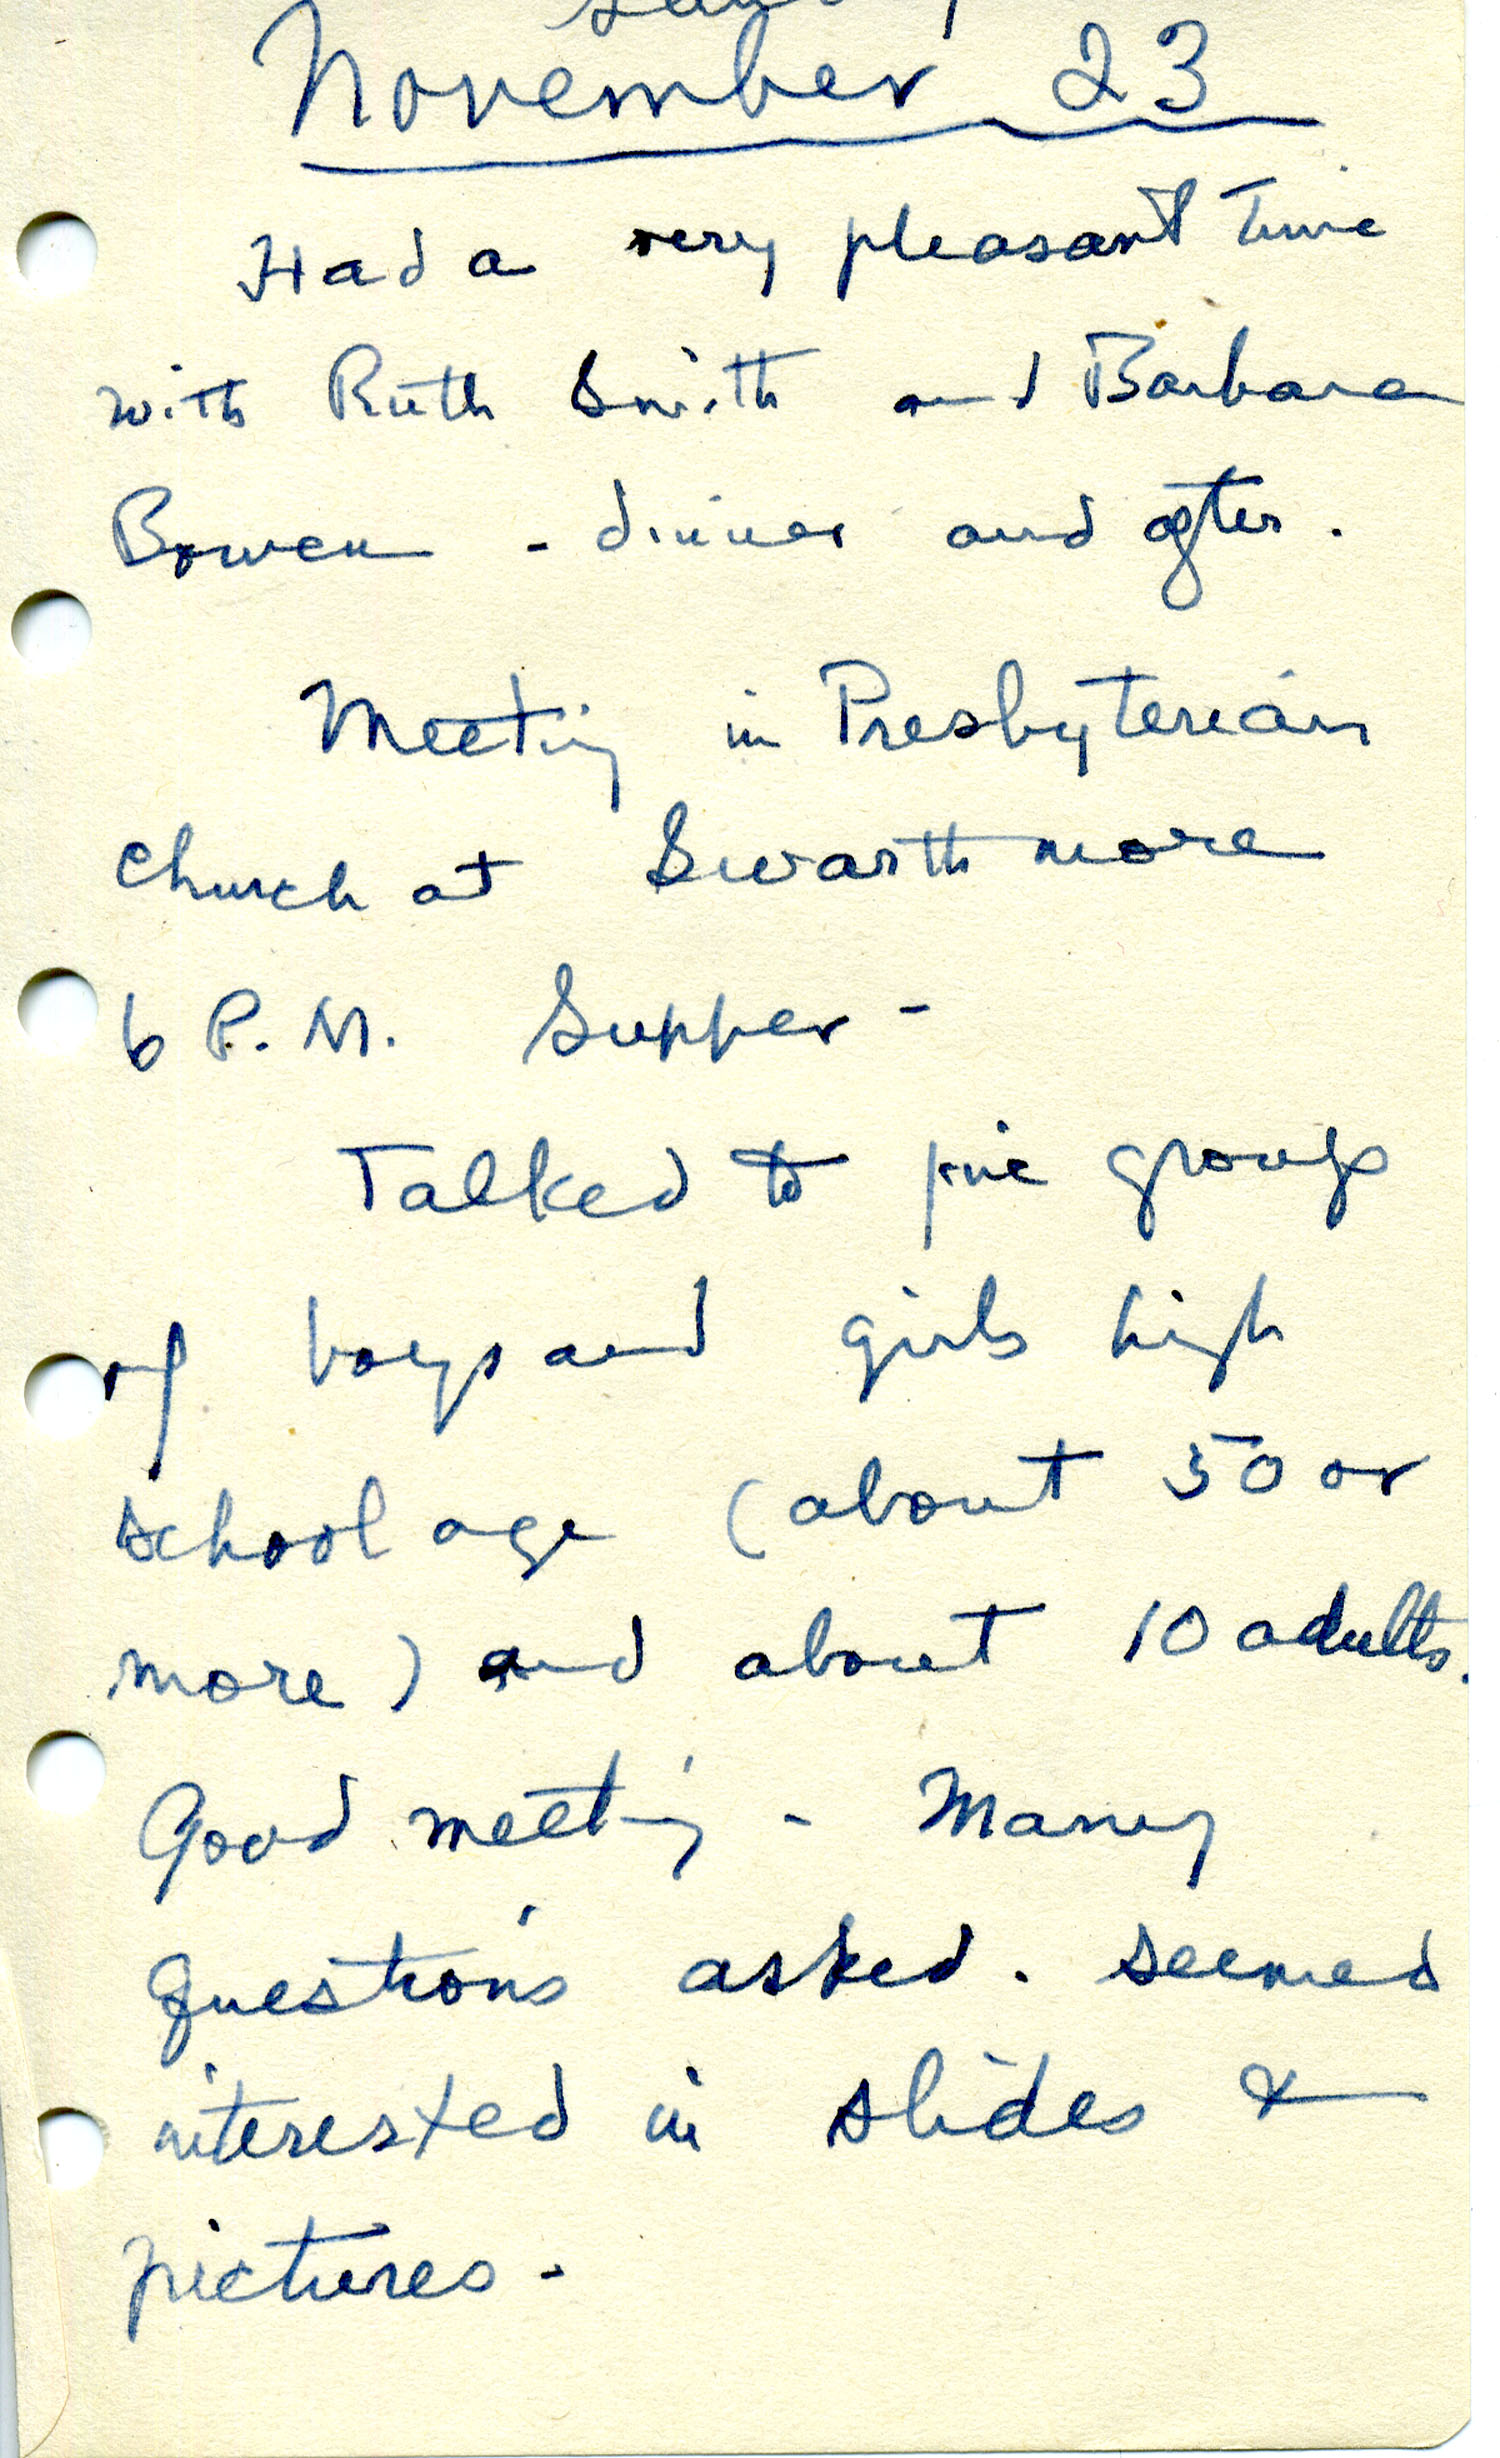 November 23
Had a very pleasant time
with Ruth Smith and Barbara
Bowen - dinner and after.
Meeting in Presbyterian
church at Swarthmore
6 P.M. Supper -
Talked to fine group
of boys and girls high
school age (about 50 or
more) and about 10 adults.
Good meeting - Many
questions asked. Seemed
interested in slides &
pictures -